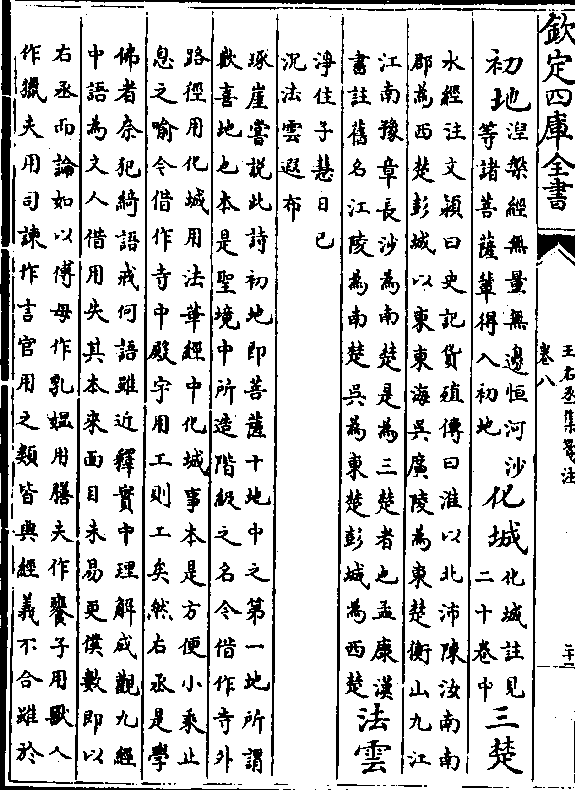 欽定四庫全書
王右丞集箋注
卷八
初地
涅槃經無量無邊恒河沙
等諸菩薩輩得入初地
化城
化城註見
二十卷中
三楚
水經注文穎曰史記貨殖傳曰淮以北沛陳汝南南
郡為西楚彭城以東東海吳廣陵為東楚衡山九江
江南豫章長沙為南楚是為三楚者也孟康漢
書註舊名江陵為南楚吳為東楚彭城為西楚
法雲
淨住子慧日已
沉法雲遐布
琢崖嘗説此詩初地即菩薩十地中之第一地所謂
歡喜地也本是聖境中所造階級之名今借作寺外
路徑用化城用法華經中化城事本是方便小乘止
息之喻今借作寺中殿宇用工則工矣然右丞是學
佛者奈犯綺語戒何語雖近釋實中理解咸觀九經
中語為文人借用失其本來面目未易更僕數即以
右丞而論如以傅母作乳媼用膳夫作饔子用獸人
作獵夫用司諫作言官用之類皆與經義不合雖於